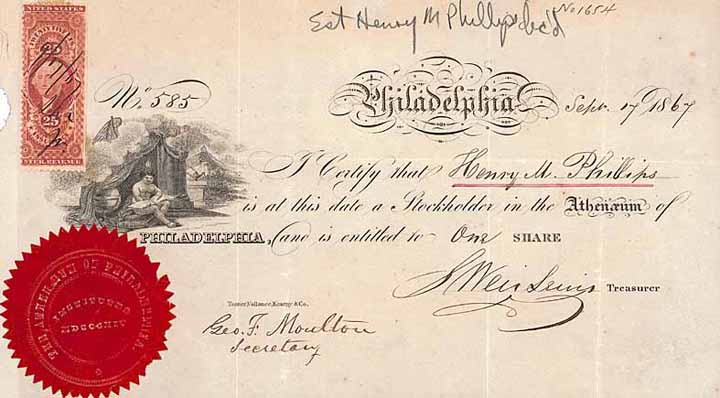 Est Henry M Phillips dec'd
No 1654
UNITED STATES
25
25
INTER. REVENUE
No. 585
Philadelphia Sept. 17 1867
I Certify that Henry M. Phillips
is at this date a Stockholder in the Athenæum of
PHILADELPHIA, and is entitled to One SHARE
S Weir Lewis Treasurer
Geo. F. Moulton
Secretary
THE ATHENÆUM OF PHILADELPHIA
INSTITUTED
MDCCCXIV